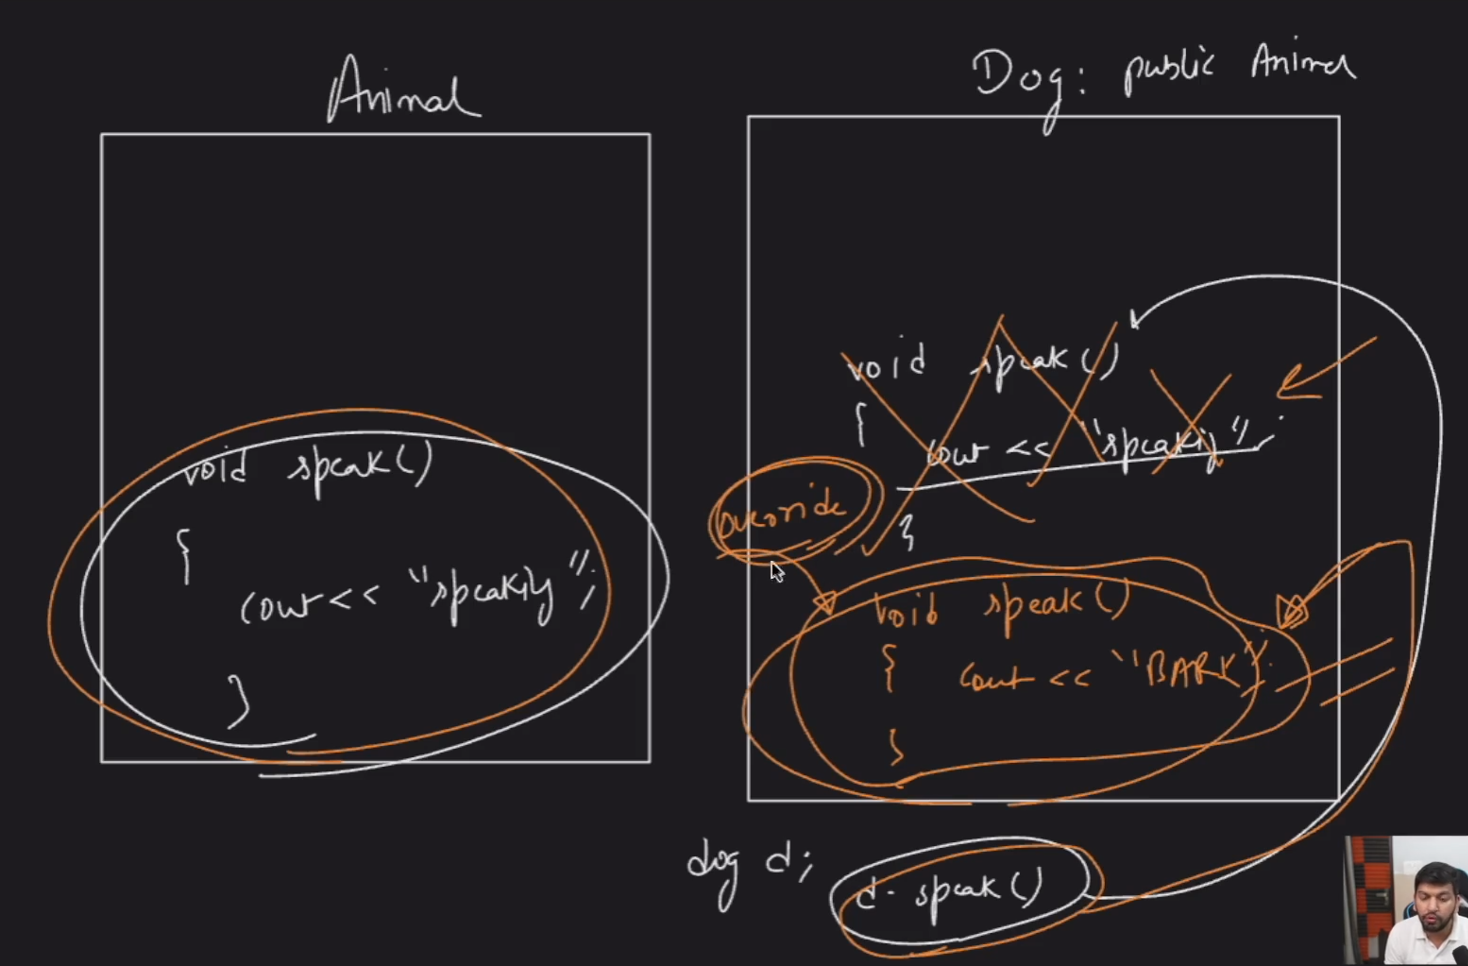 Animal
void speak()
{
cout << "speakiy";
}
Dog: public Animal
void speak()
{
cout << "speakiy"
}
override
void speak()
{ cout << "BARK";
}
dog d;
d. speak()